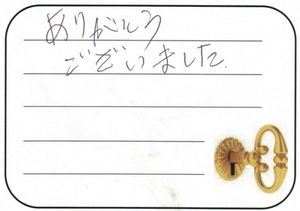 ありがとう
ございました.